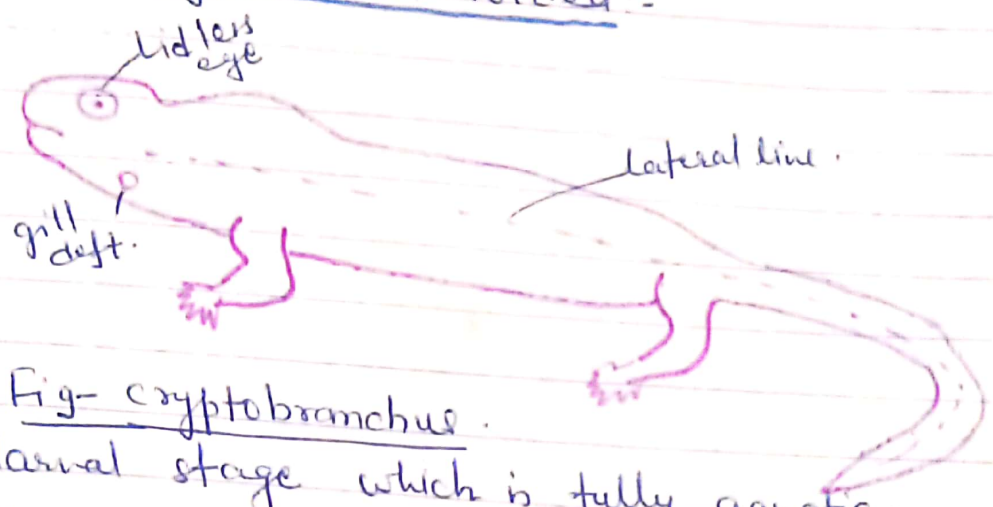 lidless
eye
lateral line.
gill
cleft.
Fig- cryptobranchus.
arval stage which is fully aquatic